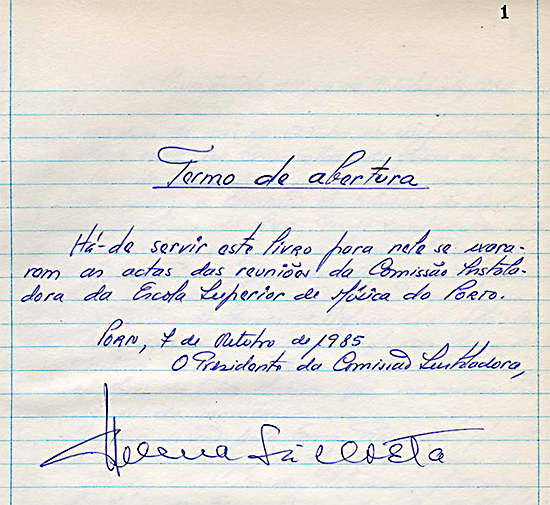 1
Termo de abertura
Há-de servir este livro para nele se exara-
rem as actas das reuniões da Comissão Instala-
dora da Escola Superior de Música do Porto.
Porto, 7 de Outubro de 1985
O Presidente da Comissão Instaladora,
Helena Sá e Costa